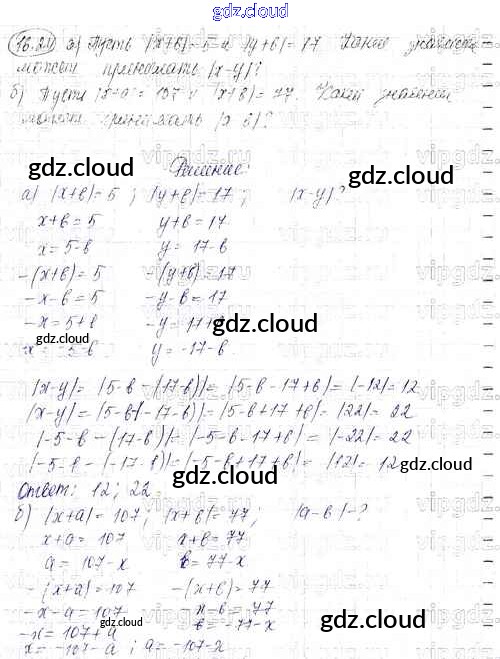 gdz.cloud
16.20 а) Пусть |x+в|=5 и |y+в|=17 Какие значения
может принимать |x-y|?
б) Пусть |x+a|=107 и |x+в|=77. Какие значения
может принимать
gdz.cloud gdz.cloud
Решение:
а) |x+в|=5 ; |y+в|=17 ; |x-y|?
x+в=5 y+в=17
x=5-в y=17-в
-(x+в)=5 -(y+в)=17
-x-в=5 -y-в=17
-x=5+в
gdz.cloud
x=-5-в y=-17-в
|x-y|=|5-в-(17-в)|=|5-в-17+в|=|-12|=12
|x-y|=|5-в-(-17-в)|=|5-в+17+в|=|22|=22
|-5-в-(17-в)|=|-5-в-17+в|=|-22|=22
|-5-в-(-17-в)|=|-5-в+17+в|=|12|=12
gdz.cloud gdz.cloud
Ответ: 12; 22
б) |x+a|=107; |x+в|=77; |a-в|-?
x+a=107 x+в=77
a=107-x в=77-x
gdz.cloud gdz.cloud
-(x+a)=107 -(x+в)=77
-x-a=107 -x-в=77
-x=107+a в=-77-x
gdz.cloud
x=-107-a ; a=-107-x